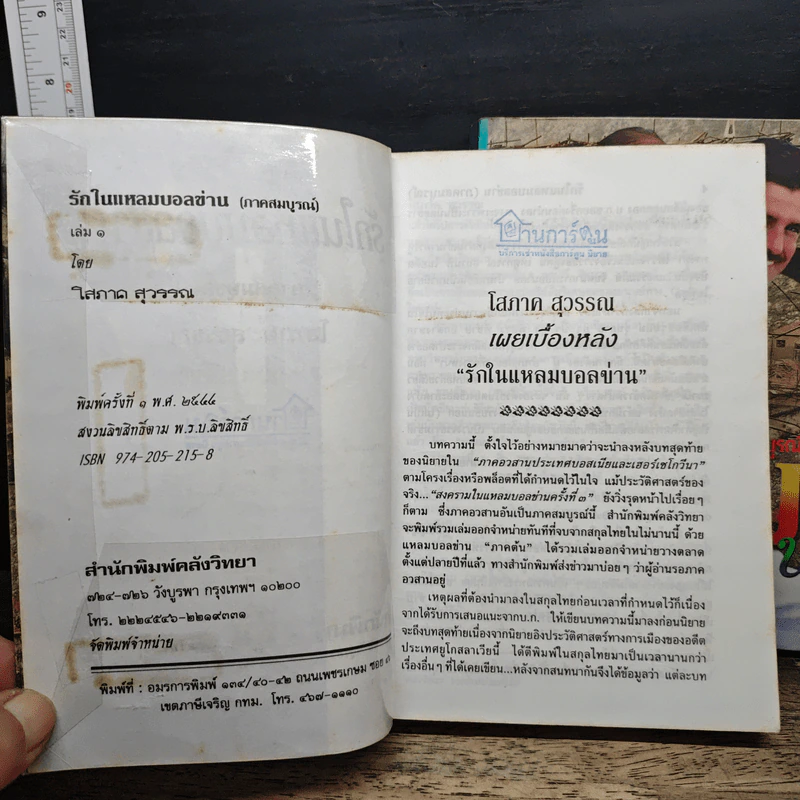 รักในแหลมบอลข่าน (ภาคสมบูรณ์)
เล่ม ๑
โดย
โสภาค สุวรรณ
พิมพ์ครั้งที่ ๑ พ.ศ. ๒๕๔๔
สงวนลิขสิทธิ์ตาม พ.ร.บ.ลิขสิทธิ์
ISBN 974-205-215-8
สำนักพิมพ์คลังวิทยา
๗๒๔-๗๒๖ วังบูรพา กรุงเทพฯ ๑๐๒๐๐
โทร. ๒๒๒๔๕๔๖-๒๒๑๙๓๓๑
จัดพิมพ์จำหน่าย
พิมพ์ที่ : อมรการพิมพ์ ๑๓๔/๔๐-๔๒ ถนนเพชรเกษม ซอย
เขตภาษีเจริญ กทม. โทร. ๔๖๗-๑๑๑๐
บ้านการ์ตูน
บริการเช่าหนังสือการ์ตูน นิยาย
โสภาค สุวรรณ
เผยเบื้องหลัง
“รักในแหลมบอลข่าน”
บทความนี้ ตั้งใจไว้อย่างหมายมาดว่าจะนำลงหลังบทสุดท้าย
ของนิยายใน “ภาคอวสานประเทศบอสเนียและเฮอร์เซโกวีนา”
ตามโครงเรื่องหรือพล็อตที่ได้กำหนดไว้ในใจ แม้ประวัติศาสตร์ของ
จริง...“สงครามในแหลมบอลข่านครั้งที่ ๓” ยังวิ่งรุดหน้าไปเรื่อยๆ
ก็ตาม ซึ่งภาคอวสานอันเป็นภาคสมบูรณ์นี้ สำนักพิมพ์คลังวิทยา
จะพิมพ์รวมเล่มออกจำหน่ายทันทีที่จบจากสกุลไทยในไม่นานนี้ ด้วย
แหลมบอลข่าน “ภาคต้น” ได้รวมเล่มออกจำหน่ายวางตลาด
ตั้งแต่ปลายปีที่แล้ว ทางสำนักพิมพ์ส่งข่าวมาบ่อยๆ ว่าผู้อ่านรอภาค
อวสานอยู่
เหตุผลที่ต้องนำมาลงในสกุลไทยก่อนเวลาที่กำหนดไว้ก็เนื่อง
จากได้รับการเสนอแนะจากบ.ก. ให้เขียนบทความนี้มาลงก่อนนิยาย
จะถึงบทสุดท้ายเนื่องจากนิยายอิงประวัติศาสตร์ทางการเมืองของอดีต
ประเทศยูโกสลาเวียนี้ ได้ตีพิมพ์ในสกุลไทยมาเป็นเวลานานกว่า
เรื่องอื่นๆ ที่ได้เคยเขียน...หลังจากสนทนากันจึงได้ข้อมูลว่า แต่ละบท